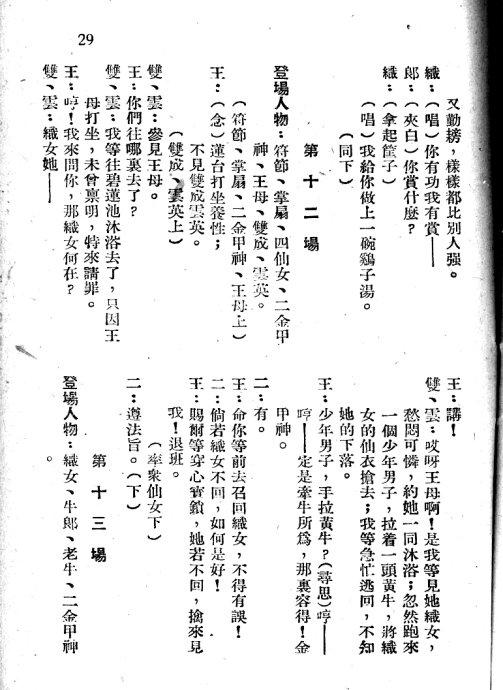 29
又勤耪，樣樣都比別人强。
織：（唱）你有功我有賞——
郎：（夾白）你賞什麽？
織：（拿起筐子）
（唱）我給你做上一碗鷄子湯。
（同下）
第十二場
登場人物：符節、掌扇、四仙女、二金甲
神、王母、雙成、雲英。
（符節、掌扇、二金甲神、王母上）
王：（念）蓮台打坐養性；
不見雙成雲英。
（雙成、雲英上）
雙、雲：參見王母。
王：你們往哪裏去了？
雙、雲：我等往碧蓮池沐浴去了，只因王
母打坐，未曾禀明，特來請罪。
王：哼！我來問你，那織女何在？
雙、雲：織女她——
王：講！
雙、雲：哎呀王母啊！是我等見她織女，
愁悶可憐，約她一同沐浴；忽然跑來
一個少年男子，拉着一頭黃牛，將織
女的仙衣搶去；我等急忙逃回，不知
她的下落。
王：少年男子，手拉黃牛？（尋思）哼——
哼！——定是牽牛所爲，那裏容得！金
甲神。
二：有。
王：命你等前去召回織女，不得有誤！
二：倘若織女不回，如何是好！
王：賜爾等穿心寳鎖，她若不回，擒來見
我！退班。
（率衆仙女下）
二：遵法旨。（下）
第十三場
登場人物：織女、牛郎、老牛、二金甲神
。